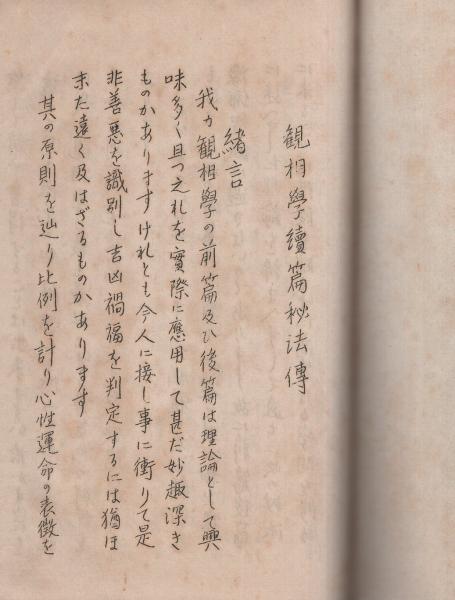 観相學續篇秘法傳
緒言
我カ観相學の前篇及ひ後篇は理論として興
味多く且つ之れを實際に應用して甚だ妙趣深き
ものかありますけれとも今人に接し事に衝りて是
非善悪を識別し吉凶禍福を判定するには猶ほ
末た遠く及はざるものかあります
其の原則を辿り比例を計り心性運命の表徴を